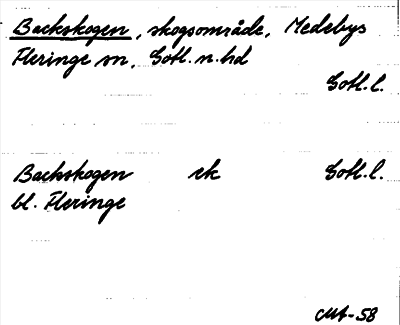 Backskogen, skogsområde, Medebys
Fleringe sn, Gotl. n. hd
Gotl. l.
Backskogen ek Gotl. l.
bl. Fleringe
-58